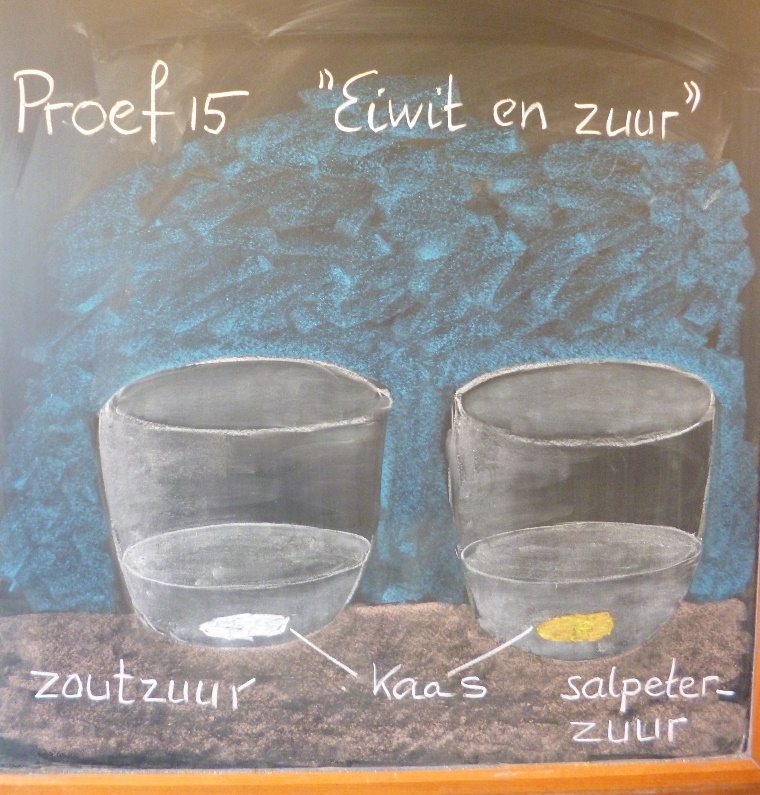 Proef 15 "Eiwit en zuur"
zoutzuur
Kaas
salpeter-
zuur